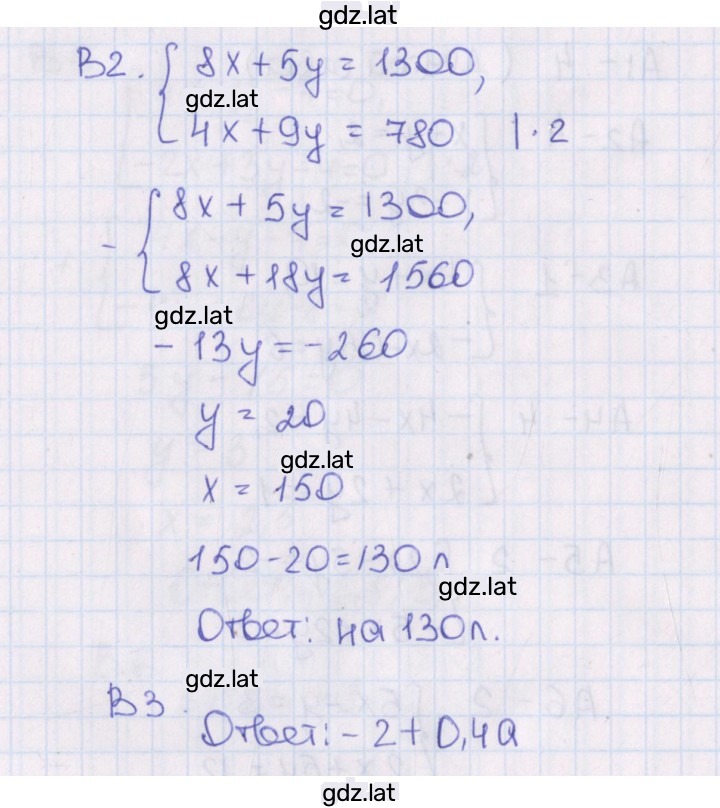 gdz.lat
B2. { 8x + 5y = 1300,
gdz.lat
4x + 9y = 780 | · 2
- { 8x + 5y = 1300,
gdz.lat
8x + 18y = 1560
gdz.lat
- 13y = -260
y = 20
gdz.lat
x = 150
150 - 20 = 130 л
gdz.lat
Ответ: на 130 л.
gdz.lat
B3
Ответ: - 2 + 0,4a
gdz.lat